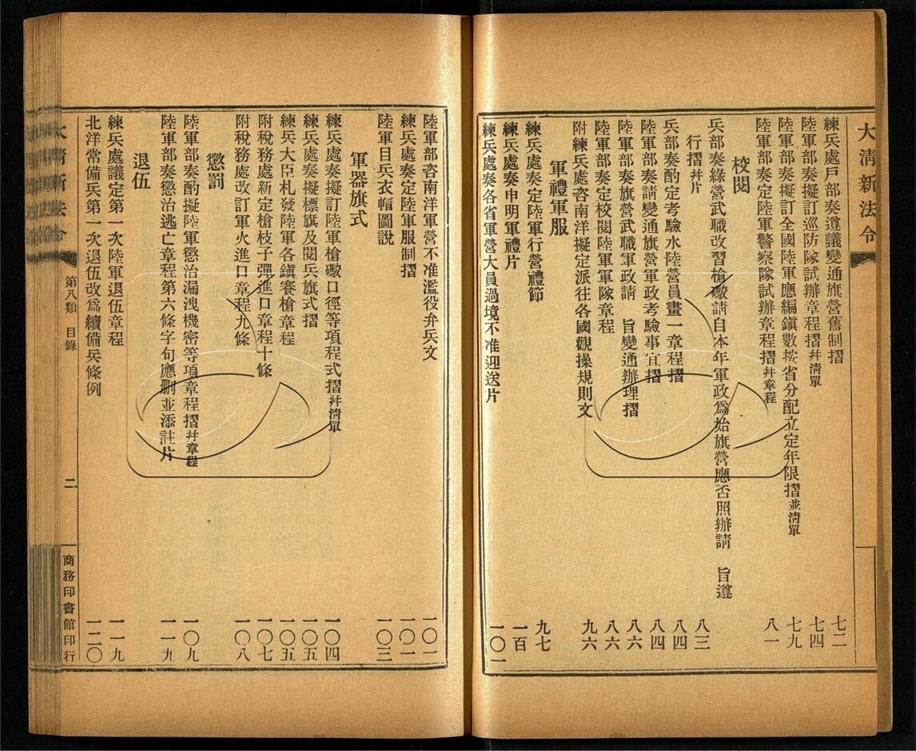 大淸新法令
練兵處戶部奏遵議變通旗營舊制摺 七二
陸軍部奏擬訂巡防隊試辦章程摺幷淸單 七四
陸軍部奏擬訂全國陸軍應編鎭數按省分配立定年限摺並淸單 七九
陸軍部奏定陸軍警察隊試辦章程摺幷章程 八一
校閱
兵部奏綠營武職改習槍礮請自本年軍政爲始旗營應否照辦請 旨遵
行摺幷片 八三
兵部奏酌定考驗水陸營員畫一章程摺 八四
陸軍部奏請變通旗營軍政考驗事宜摺 八四
陸軍部奏旗營武職軍政請 旨變通辦理摺 八六
陸軍部奏定校閱陸軍軍隊章程 八六
附練兵處咨南洋擬定派往各國觀操規則文 九六
軍禮軍服
練兵處奏定陸軍行營禮節 九七
練兵處奏申明軍禮片 一百
練兵處奏各省軍營大員過境不准迎送片 一〇一
陸軍部咨南洋軍營不准濫役弁兵文 一〇一
練兵處奏定陸軍服制摺 一〇一
陸軍目兵衣帽圖說 一〇三
軍器旗式
練兵處奏擬訂陸軍槍礮口徑等項程式摺幷淸單 一〇四
練兵處奏擬標旗及閱兵旗式摺 一〇五
練兵大臣札發陸軍各鎭賽槍章程 一〇五
附稅務處新定槍枝子彈進口章程十條 一〇七
附稅務處改訂軍火進口章程九條 一〇八
懲罰
陸軍部奏酌擬陸軍懲治漏洩機密等項章程摺幷章程 一〇九
陸軍部奏懲治逃亡章程第六條字句應刪並添註片 一一九
退伍
練兵處議定第一次陸軍退伍章程 一一九
北洋常備兵第一次退伍改爲續備兵條例 一二〇
大淸新法令
第八類 目錄
二
商務印書館印行